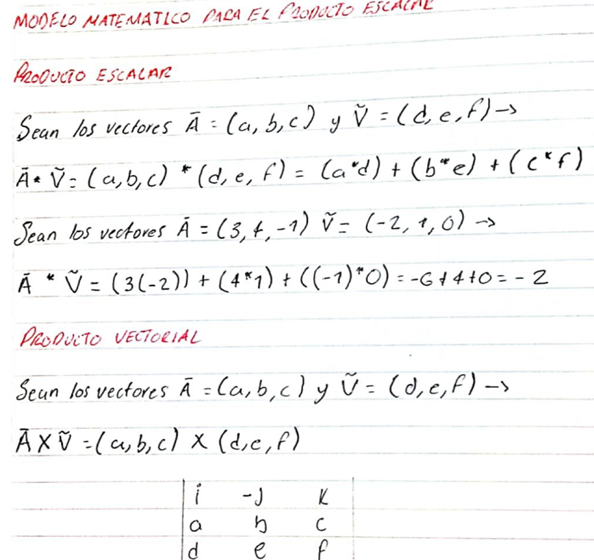 MODELO MATEMATICO PARA EL PRODUCTO ESCALAR
PRODUCTO ESCALAR
Sean los vectores Ā = (a, b, c) y Ṽ = (d, e, f) →
Ā * Ṽ = (a, b, c) * (d, e, f) = (a*d) + (b*e) + (c*f)
Sean los vectores Ā = (3, 4, -1) Ṽ = (-2, 1, 0) →
Ā * Ṽ = (3(-2)) + (4*1) + ((-1)*0) = -6+4+0 = -2
PRODUCTO VECTORIAL
Sean los vectores Ā = (a, b, c) y Ṽ = (d, e, f) →
Ā X Ṽ = (a, b, c) X (d, e, f)
i -J K
a b c
d e f